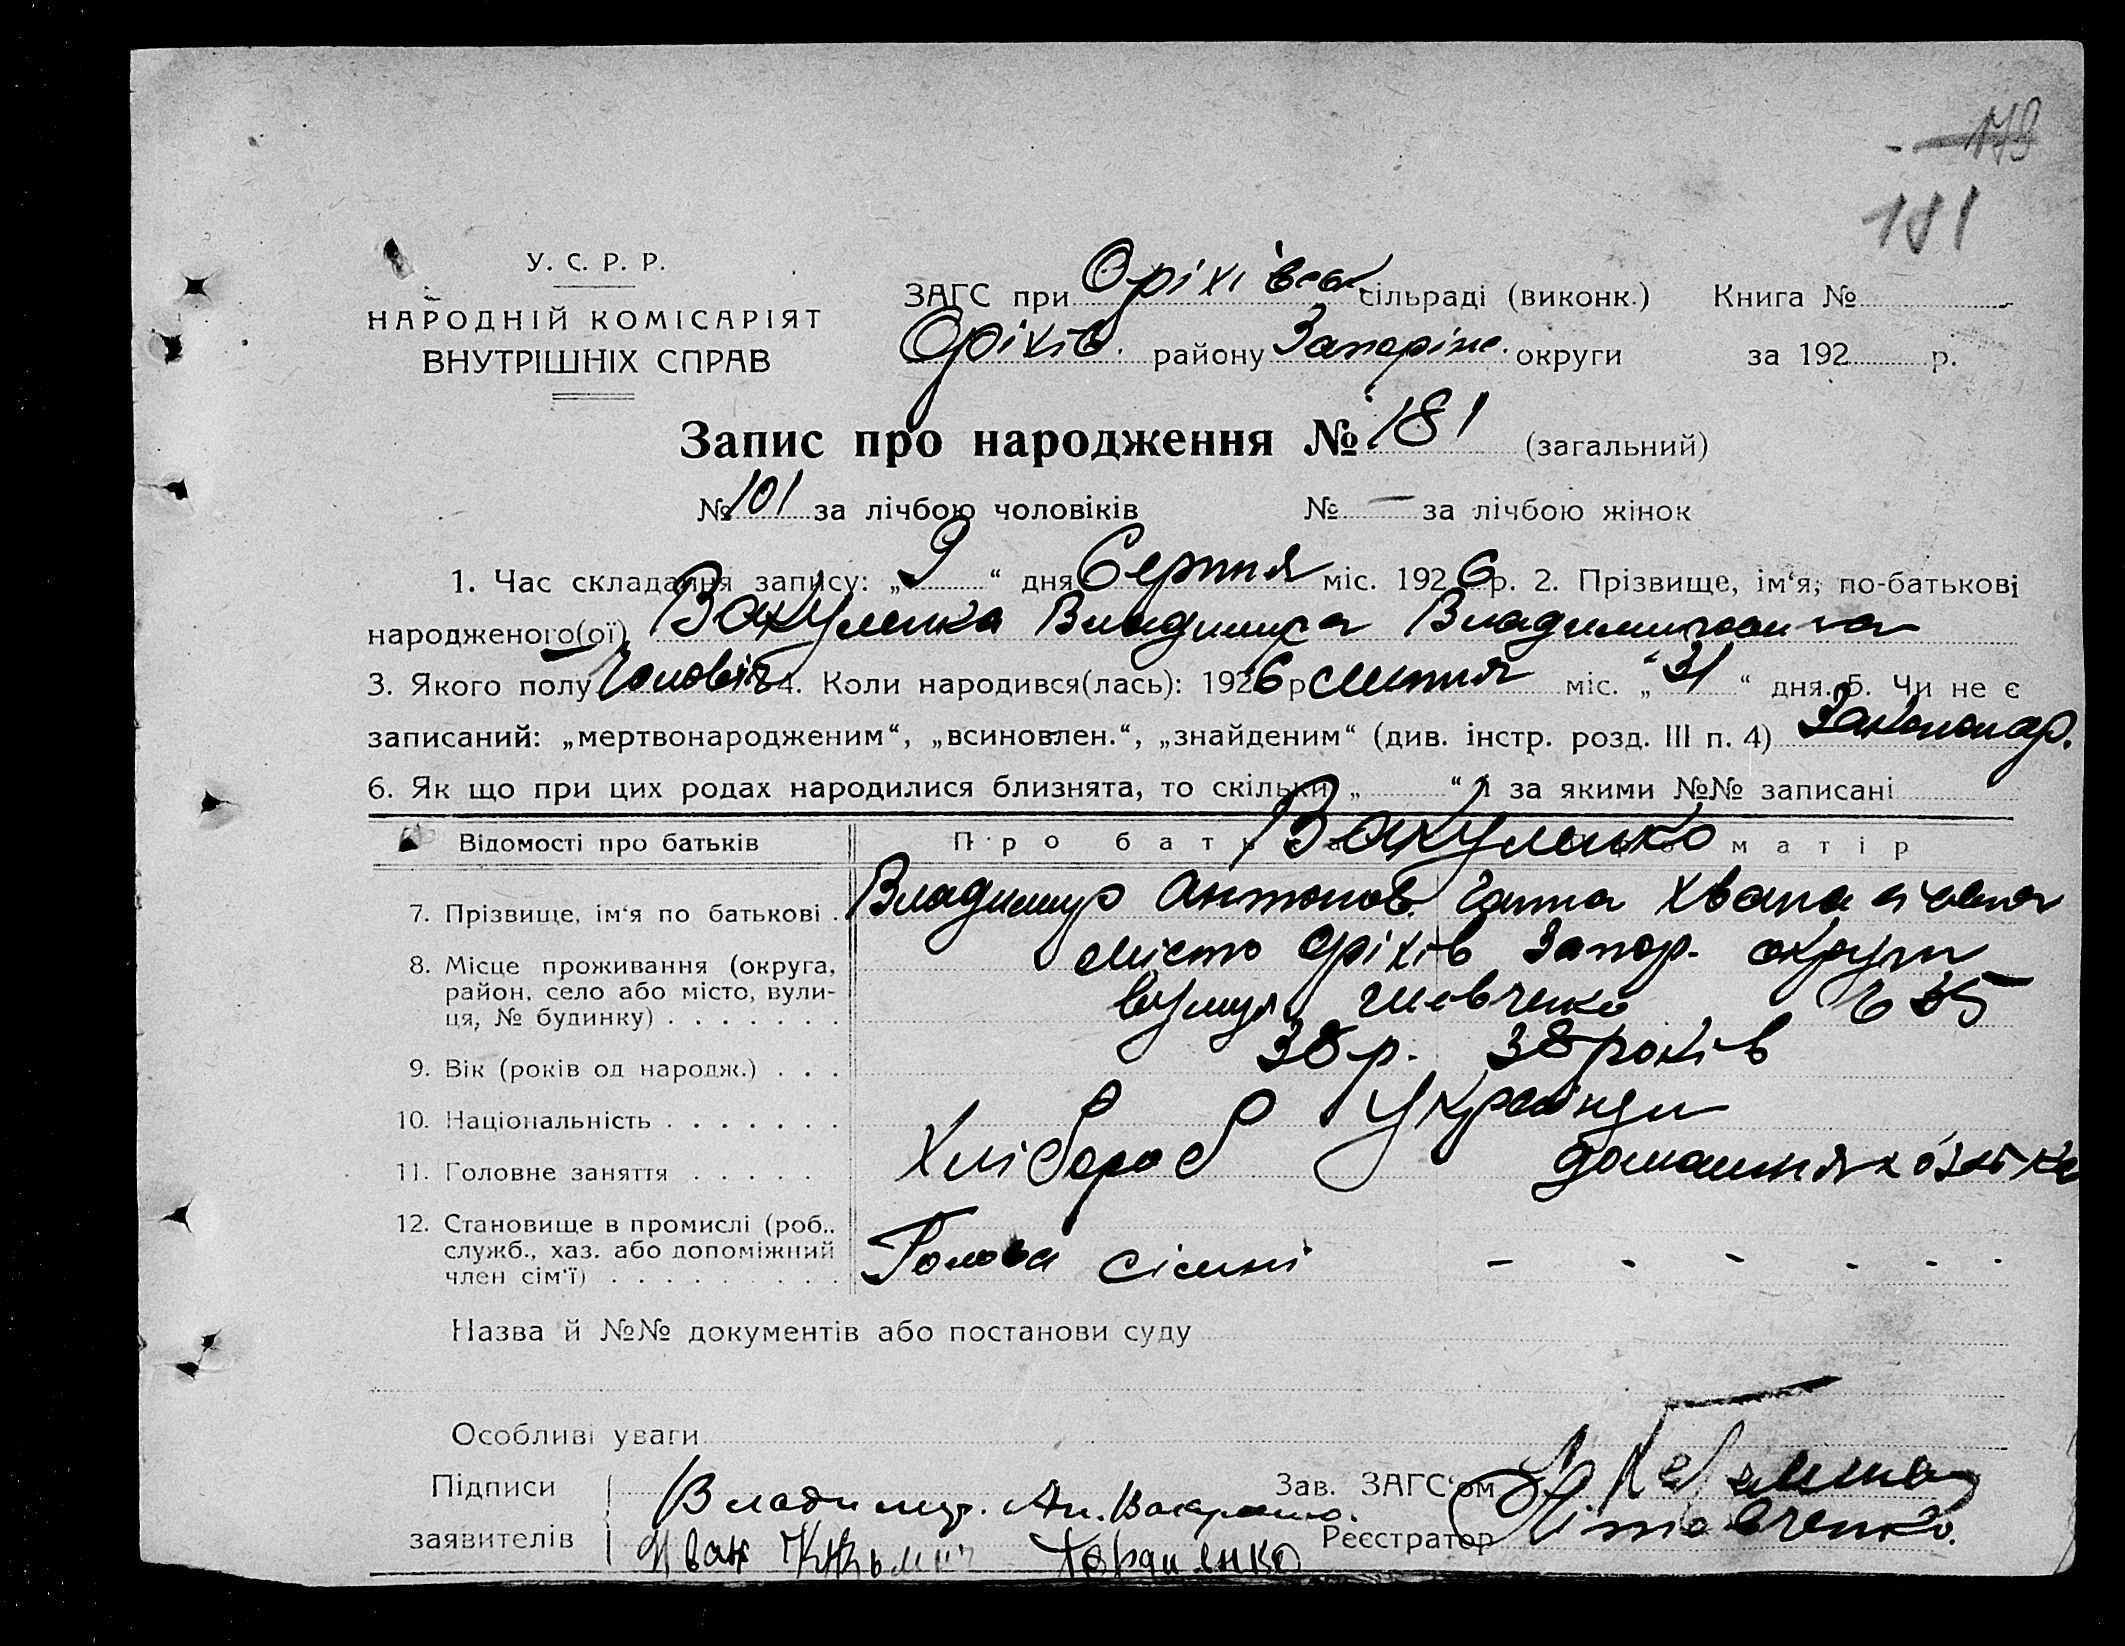 178
181
У. С. Р. Р.
НАРОДНІЙ КОМІСАРІЯТ
ВНУТРІШНІХ СПРАВ
ЗАГС при Оріхівск сільраді (виконк.) Книга №
Оріхів. району Запоріж. округи за 192 р.
Запис про народження № 181 (загальний)
№ 101 за лічбою чоловіків № — за лічбою жінок
1. Час складання запису: „ 9 “ дня Серпня міс. 1926 р. 2. Прізвище, ім‘я, по-батькові
народженого(ої) Вакуленка Владимира Владимировича
3. Якого полу Чоловіч 4. Коли народився(лась): 1926 р Липня міс. „ 31 “ дня. 5. Чи не є
записаний: „мертвонародженим“, „всиновлен.“, „знайденим“ (див. інстр. розд. III п. 4) Законнар.
6. Як що при цих родах народилися близнята, то скільки „ “ й за якими №№ записані
Відомості про батьків Про батька Про матір
Вакуленко
7. Прізвище, ім‘я по батькові . Владимир Антонов. Ганна
8. Місце проживання (округа, район, село або місто, вулиця, № будинку) . . . . . . . місто Оріхів Запор. округи
вулиця Шевченко
9. Вік (років од народж.) . . . 38 р. 38 років
10. Національність . . . . . . . Українци
11. Головне заняття . . . . . Хлібороб домашня хозяйка
12. Становище в промислі (роб., служб., хаз. або допоміжний член сім‘ї) . . . . . . . . . Голова сімні - - - - - -
Назва й №№ документів або постанови суду
Особливі уваги
Підписи заявителів Владимир. Ан. Вакуленко.
Иван Кузьмич Гордиенко
Зав. ЗАГС‘ом
Реєстратор Літовченко.